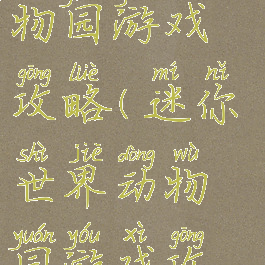 物园游戏
gōng lüè mí nǐ
攻略(迷你
shì jiè dòng wù
世界动物
yuán yóu xì gōng
园游戏攻